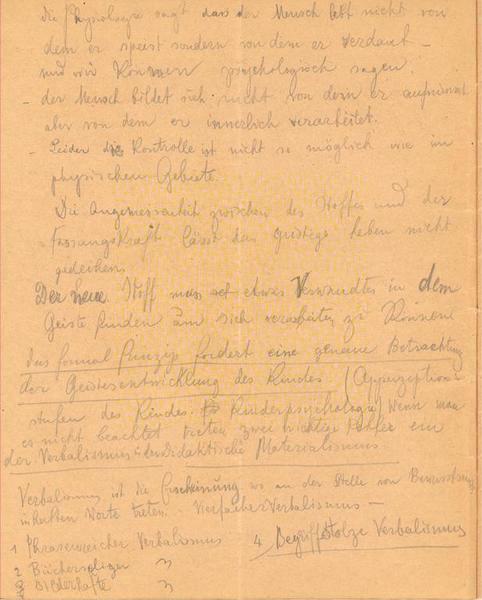 die Physiologie sagt dass der Mensch lebt nicht von
dem er speist sondern von dem er verdaut –
und wir können psychologisch sagen,
– der Mensch bildet sich nicht von dem er aufnimmt
aber von dem er innerlich verarbeitet.
– Leider die Kontrolle ist nicht so möglich wie im
physischen Gebiete.
Die zwischen des Stoffes und der
Fassungskraft lässt das geistige Leben nicht
gedeihen
Der neue Stoff muss etwas Verwandtes in dem
Geiste finden um sich verarbeiten zu können
das formal Prinzip fordert eine genaue Betrachtung
der Geistesentwicklung des Kindes (Apperzeptions-
stufen des Kindes. Kinderpsychologie) Wenn man
es nicht beachtet treten zwei wichtige Fehler ein
der Verbalismus u. der Didaktische Materialismus
Verbalismus ist die Erscheinung wo an der Stelle von Bewusstseins
inhalten Worte treten. Vierfacher Verbalismus –
1 Phrasenreicher Verbalismus 4. Begriffstolze Verbalismus
2 Bücherseliger "
3 "